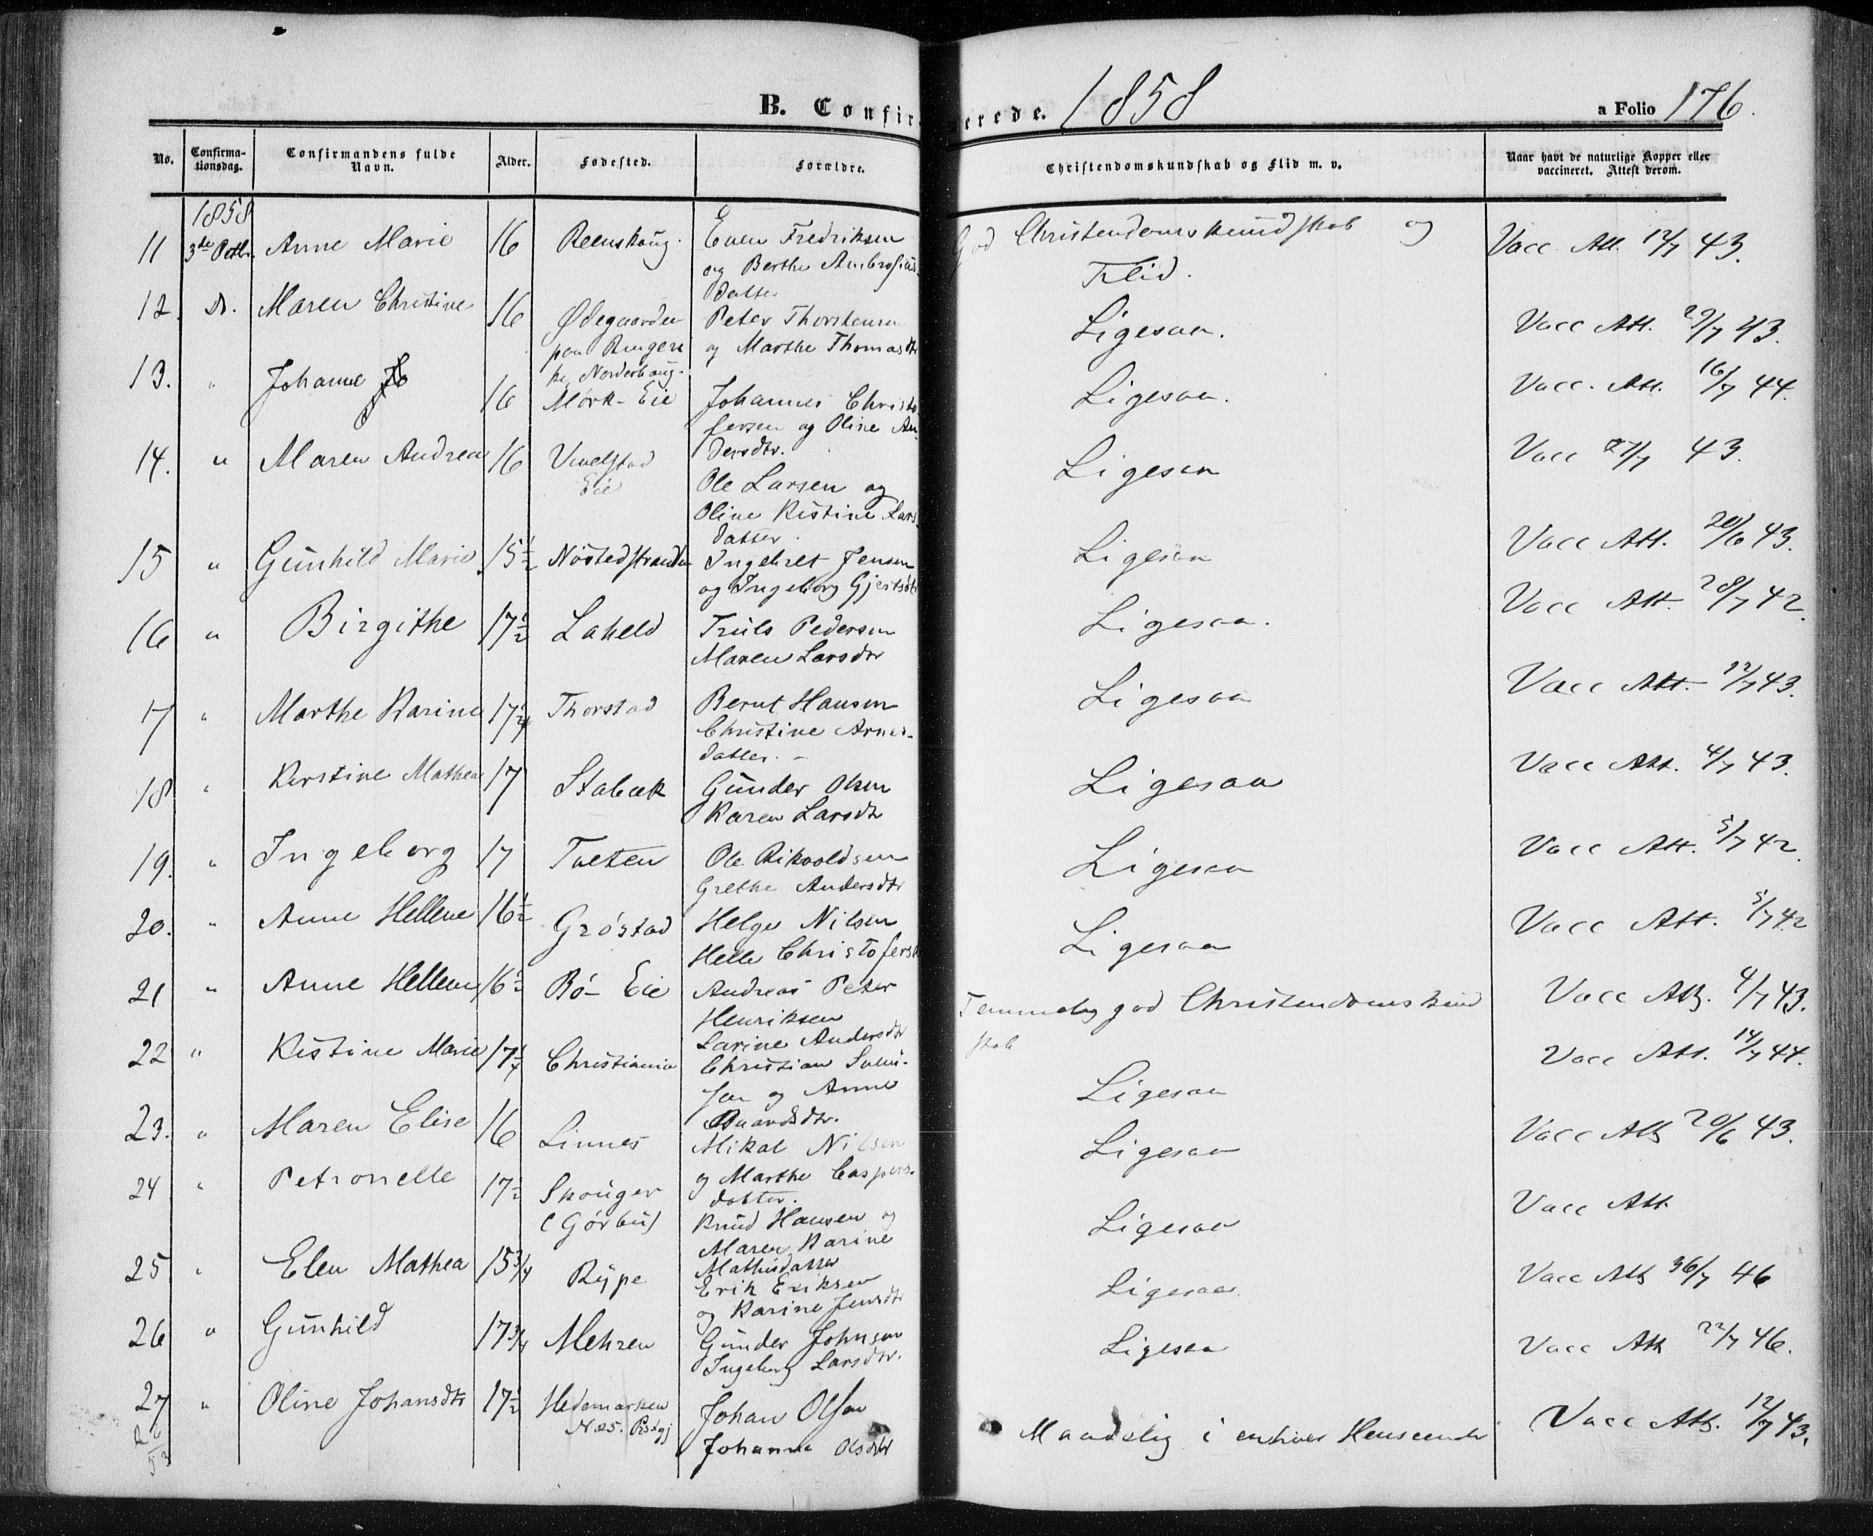 B. Confirmerede. 1858
a Folio 176.
No. Confirmationsdag. Confirmandens fulde Navn. Alder. Fødested. Forældre. Christendomskundskab og Flid m. v. Naar havt de naturlige Kopper eller vaccineret. Attest derom.
1858
11 3die Anne Marie 16 Reenskoug. Even Fredriksen God Christendomskundskab og Vacc. Att. 12/7 43.
og Berthe Ambrosius- Flid.
datter
12. Do. Maren Christine 16 Ødegaarden Peter Thorstensen Ligesaa. Vacc Att. 29/7 43.
paa Ringeri og Marthe Thomasdtr
ke, Norderhoug.
13. " Johanne 16 Mørk-Eie Johannes Christo Ligesaa. Vacc. Att. 16/7 44.
fersen og Oline An
dersdtr.
14. " Maren Andrea 16 Vinelstad Ligesaa Vacc 43.
Eie Ole Larsen og
Oline Kistine Lars
datter
15 " Gunhild Marie 15½ Nøstedstranden Ingebret Jensen Ligesaa Vacc Att. 20/6 43.
og Ingeborg Gjertsdtr
16 " Birgithe 17½ Laheld Truls Pedersen Ligesaa. Vacc Att. 28/7 42.
Maren Larsdtr
17 " Marthe Karine Thorstad Bernt Hansen Ligesaa Vacc Att. 43.
Christine Arnes-
datter. -
18 " Kirstine Mathea 17 Stabæk Gunder Olsen Ligesaa Vacc Att. 4/7 43.
Karen Larsdtr
19. " Ingeborg 17 Tveten Ole Rikvoldsen Ligesaa Vacc Att. 5/7 42.
Grethe Andersdtr
20. " Anne Hellene 16½ Grøstad Helge Nilsen Ligesaa Vacc Att. 5/7 42
Helle Christofersd
21 " Anne Hellene 16½ Bø- Eie Andreas Peter Temmelig god Christendomskund Vacc Att. 4/7 43.
Henriksen skab
Larine Andersdtr
22 " Kistine Marie Christiania Christian Ligesaa Vacc Att. 14/7 44.
og Anne
23. " Maren Elise 16 Linnes Mikal Nilsen Ligesaa Vacc Att 20/6 43.
og Marthe Caspers.
datter.
24 " Petronelle 17½ Skouger Knud Hansen og Ligesaa Vacc Att
(Gørbu) Maren Karine
25 " Elen Mathea 15¾ Rype Erik Eriksen Ligesaa. Vacc Att 46
og Karine Jensdtr
26 " Gunhild 17¾ Mehren Gunder Johnsen Ligesaa Vacc Att 22/7 46.
Ingeborg Larsdtr.
27 " Oline Johansdtr 17½ Hedemarken Johan Olsen Maadelig i enhver Henseende Vacc Att. 12/7 43.
Næs. Pstgj Johanna Olsdtr